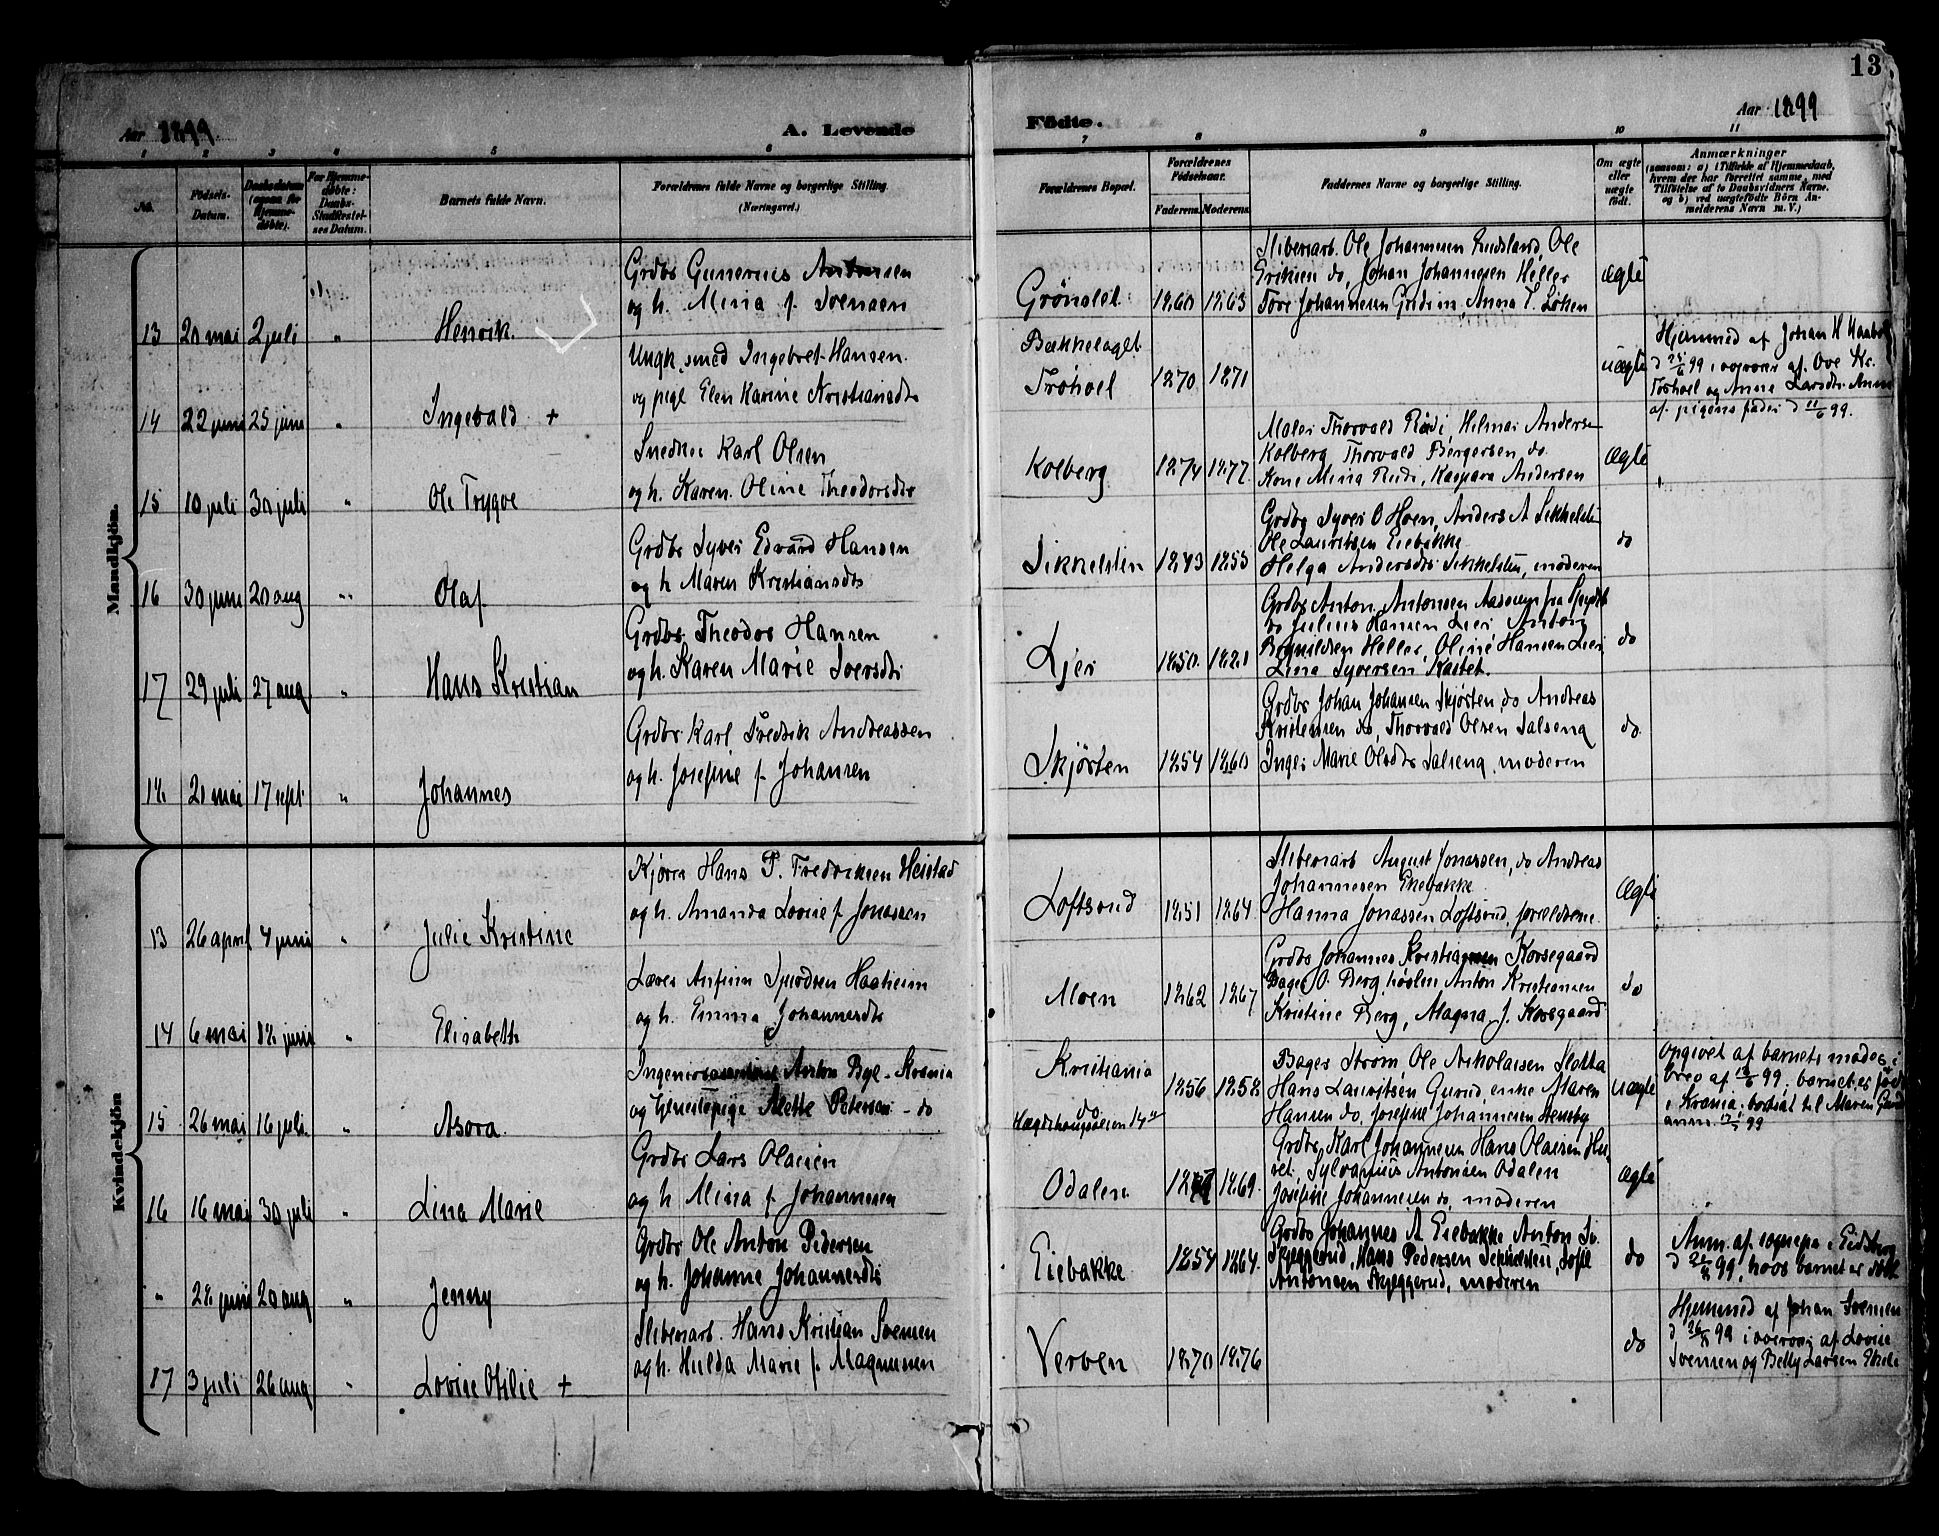 13
Aar 1899
A. Levende
Fødte.
Aar 1899
1 2 3 4 5 6 7 8 9 10 11
No.
Fødsels-
Datum.
Daabsdatum
(ogsaa for
Hjemme-
døbte).
For Hjemme-
døbte:
Daabs-
Stadfæstel-
ses Datum.
Barnets fulde Navn.
Forældrenes fulde Navne og borgerlige Stilling.
(Næringsvei.)
Forældrenes Bopæl.
Forældrenes
Fødselsaar.
Faderens. Moderens.
Faddernes Navne og borgerlige Stilling.
Om ægte
eller
uægte
født.
Anmærkninger
(saasom: a) i Tilfælde af Hjemmedaab,
hvem der har forrettet samme, med
Tilføielse af to Daabsvidners Navne,
og b) ved uægtefødte Børn An-
melderens Navn m. V.)
Mandkjøn.
13 20 mai 2 juli " Henrik.
Grdbr Gunerius Antonsen
og h. Mina f. Svensen
Grönslet 1860 1863
Sliberiarb. Ole Johannesen Ole
Eriksen do, Johan Johannesen Heller
Tore Johannesen Anna T. Løken
ægte
14 22 juni 25 juni " Ingevald +
Ungk. smed Ingebret Hansen
og pige Elen Karine Kristiansdtr
Bækkelaget
Trøhoel 1870 1871
uægte
Hjemmed. af Johan H
d 25/6 99 i overvær af Ove Kr.
Trøhoel og Anne Larsdtr. Anm
af pigens fader d 11/6 99.
15 10 juli 30 juli " Ole Trygve
Snedker Karl Olsen
og h. Karen Oline Theodorsdtr
Kolberg 1874 1877
Maler Thorvald Hilmar Andersen
Kolberg Thorvald Bergersen do
Kone Mina Kaspara Andersen
ægte
16 30 juni 20 aug " Olaf
Grdbr Syver Edvard Hansen
og h Maren Kristiansdtr
Sikkelsten 1843 1855
Grdbr Syver O Hoen, Anders A Sikkelsten
Ole Lauritsen Eiebakke
Helga Andersdtr Sikkelsten, moderen
do
17 29 juli 27 aug " Hans Kristian
Grdbr Theodor Hansen
og h. Karen Marie Iversdtr
Ljer 1850
Grdbr Anton Antonsen fra
do Julius Hansen Lier Anton
Heller, Oline Hansen Lier
Lina Syversen Kastet.
do
18 20 mai 17 sept " Johannes
Grdbr Karl Fredrik Andreassen
og h. Josefine f. Johansen
Skjørten 1854 1860
Grdbr Johan Johansen Skjørten, do Andreas
Kristensen do, Thorvald Olsen Salseng
Inger Marie Olsdtr Salseng, moderen
do.
Kvindekjøn
13 26 april 4 juni " Julie Kristine
Kjører Hans P. Fredriksen Heistad
og h. Amanda Lovise f Jonassen
Loftsrud 1851 1864
Sliberiarb August Jonassen, do Andreas
Johannesen Ekebakke
Hanna Jonassen Loftsrud, forældrene
ægte
14 6 mai 18 juni " Elisabeth
Lærer Anfinn Haaheim
og h. Emma Johannesdtr
Moen 1862 1867
Grdbr Johannes Kristiansen Korsegaard
Bager O. Berg, Anton Kristiansen
Kristine Berg, Magna J. Korsegaard
do
15 26 mai 16 juli Asora
Anton Bye - Krania
og tjenestepige Alette Petersen - do
Kristiania
do 1856 1858
Bager Strøm Ole Nikolaisen Slotta
Hans Lauritsen Gurud, enke Maren
Hansen do, Josefine Johannesen Stensby
uægte
Opgivet af barnets moder i
brev af 99, barnet er født
i Krania, bortsat til Maren
16 16 mai 30 juli " Lina Marie
Grdbr Lars Olaisen
og h Mina f. Johannesen
Odalen 1869
Grdbr Karl Johannesen Hans Olaisen
Sylvanus Antonsen Odalen
Josefine Johannesen do, moderen
ægte
" 28 juni 20 aug " Jenny
Grdbr Ole Anton Pedersen
og h. Johanne Johannesdtr
Eiebakke 1854 1864
Grdbr Johannes A Eiebakke Anton
Skjeggerud, Hans Pedersen Sikkelsten, Sofie
Antonsen Skjeggerud, moderen
do
Anm. af sognepr. i Eidsberg
99, hvor barnet er født
17 3 juli 26 aug " Lovise Otilie +
Sliberiarb. Hans Kristian Svensen
og h. Hulda Marie f. Magnussen
Verven 1870 1876
do
Hjemmed af Johan Svensen
d 26/8 99 i overvær af Lovise
Svensen og Betty Larsen